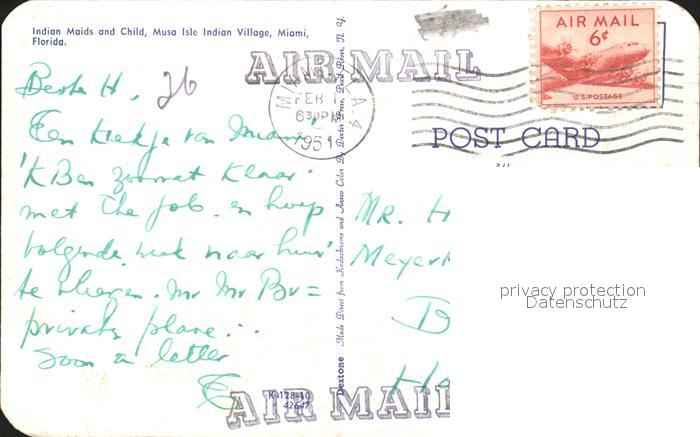 Indian Maids and Child, Musa Isle Indian Village, Miami,
Florida.
AIR MAIL
AIR MAIL
6¢
U.S. POSTAGE
FEB
630 PM
1951
POST CARD
Beste H, 26
Een kiekje van Miami
'K Ben zoowat klaar
met the job en hoop
volgende week naar huis
te vliegen. Mr
private plane...
Soon a letter
MR. H
Meyer
B
Ha
Dextone Made Direct from Kodachrome and Ansco Color By Dexter Press, Pearl River, N. Y.
K-128-10
42647
AIR MAIL
privacy protection
Datenschutz